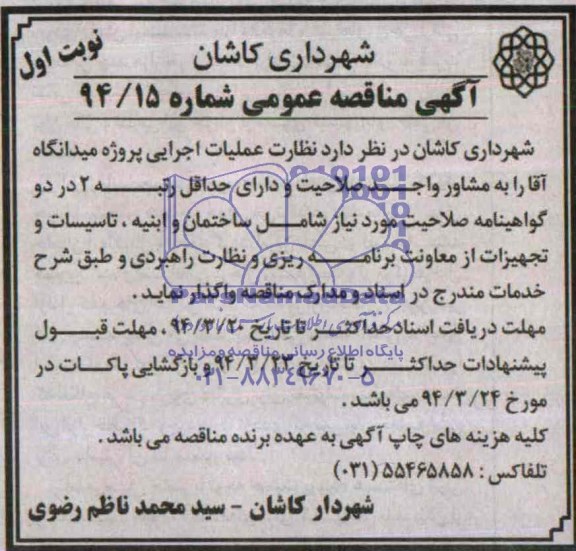 نوبت اول
شهرداری کاشان
آگهی مناقصه عمومی شماره ۹۴/۱۵
شهرداری کاشان در نظر دارد نظارت عملیات اجرایی پروژه میدانگاه
آقا را به مشاور واجد صلاحیت و دارای حداقل رتبه ۲ در دو
گواهینامه صلاحیت مورد نیاز شامل ساختمان و ابنیه ، تاسیسات و
تجهیزات از معاونت برنامه ریزی و نظارت راهبردی و طبق شرح
خدمات مندرج در اسناد و مدارک مناقصه واگذار نماید .
ParsNamadData
مهلت دریافت اسناد حداکثر تا تاریخ ۹۴/۳/۲۰ ، مهلت قبول
پایگاه اطلاع رسانی مناقصه و مزایده
پیشنهادات حداکثر تا تاریخ ۹۴/۳/۲۳ و بازگشایی پاکات در
۰۲۱-۸۸۳۴۹۶۷۰-۵
مورخ ۹۴/۳/۲۴ می باشد .
کلیه هزینه های چاپ آگهی به عهده برنده مناقصه می باشد .
تلفاکس : ۵۵۴۶۵۸۵۸ (۰۳۱)
شهردار کاشان - سید محمد ناظم رضوی